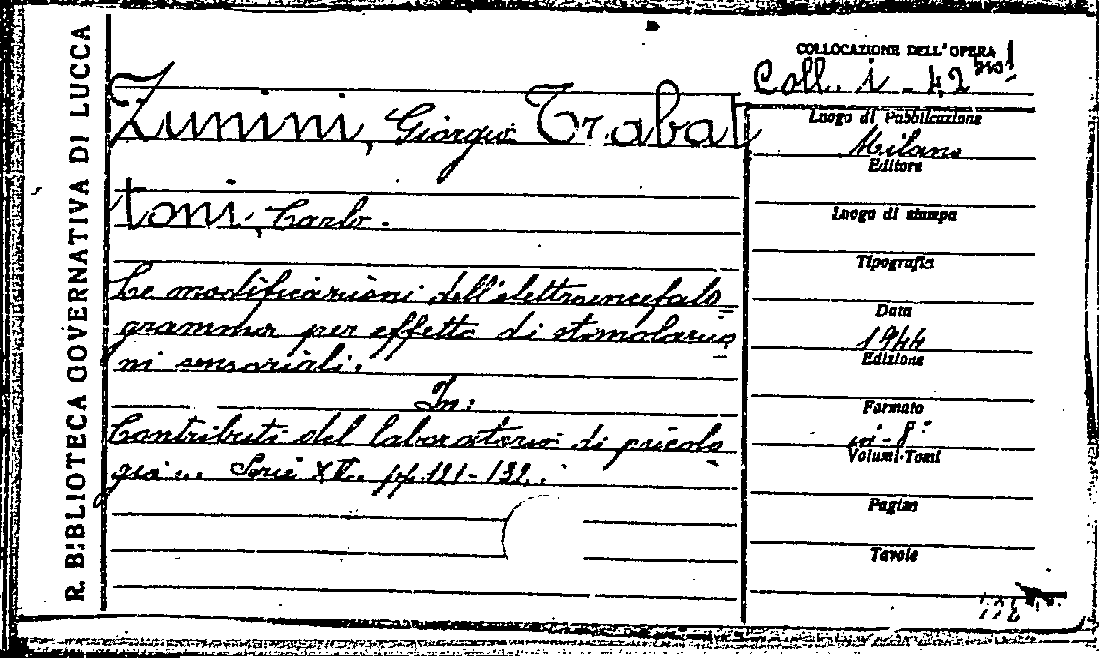 R. BIBLIOTECA GOVERNATIVA DI LUCCA
COLLOCAZIONE DELL'OPERA
Coll. i - 42
Zunini, Giorgio Trabat
toni, Carlo.
Le modificazioni dell'elettroencefalo
gramma per effetto di stimolazio
ni sensoriali.
In:
Contributi del laboratorio di psicolo
gia ... Serie XII. pp. 121-132.
Luogo di Pubblicazione
Milano
Editore
Luogo di stampa
Tipografia
Data
1944
Edizione
Formato
in-8°
Volumi-Tomi
Pagine
Tavole